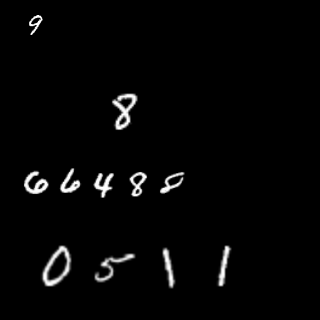 9
8
66488
0511